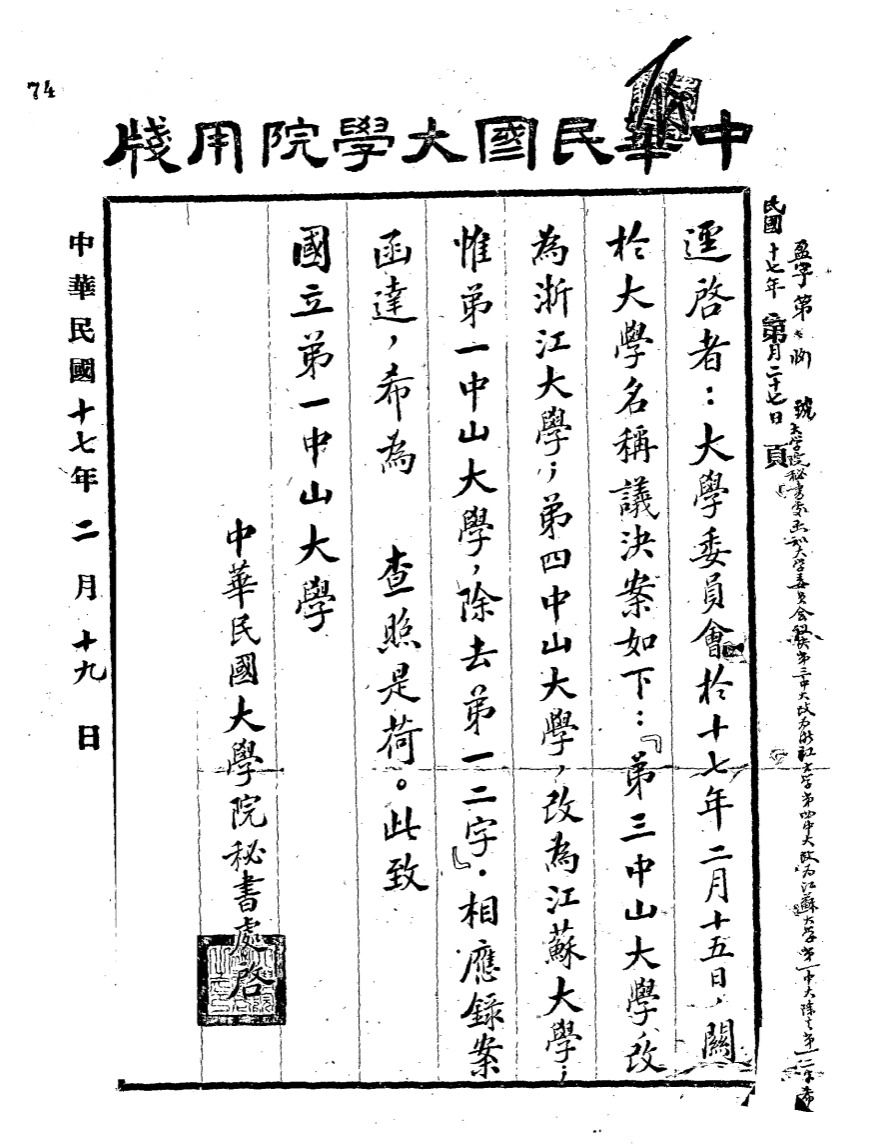 74
中華民國大學院用牋
盈字第 號
民國十七年 月二十七日 第 頁
大学院秘書處函知大学委員会議決第三中大改为浙江大学第四中大改为江蘇大学第一中大除去第一二字希
逕啓者：大學委員會於十七年二月十五日，關
於大學名稱議決案如下：『第三中山大學，改
為浙江大學；第四中山大學，改為江蘇大學；
惟第一中山大學，除去第一二字』．相應錄案
函達，希為 查照是荷。此致
國立第一中山大學
中華民國大學院秘書處啓
中華民國十七年二月十九日